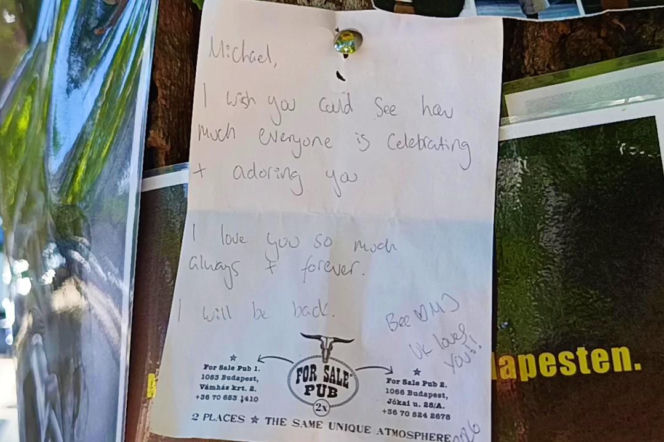 Michael,
I wish you could see how
much everyone is celebrating
+ adoring you
I love you so much
always + forever.
I will be back.
We love
You!!
FOR SALE
PUB
2x
For Sale Pub 1.
1053 Budapest,
Vámház krt. 2.
+36 70 653 1410
For Sale Pub 2.
1066 Budapest,
Jókai u. 28/A.
+36 70 524 2678
2 PLACES ★ THE SAME UNIQUE ATMOSPHERE
apesten.